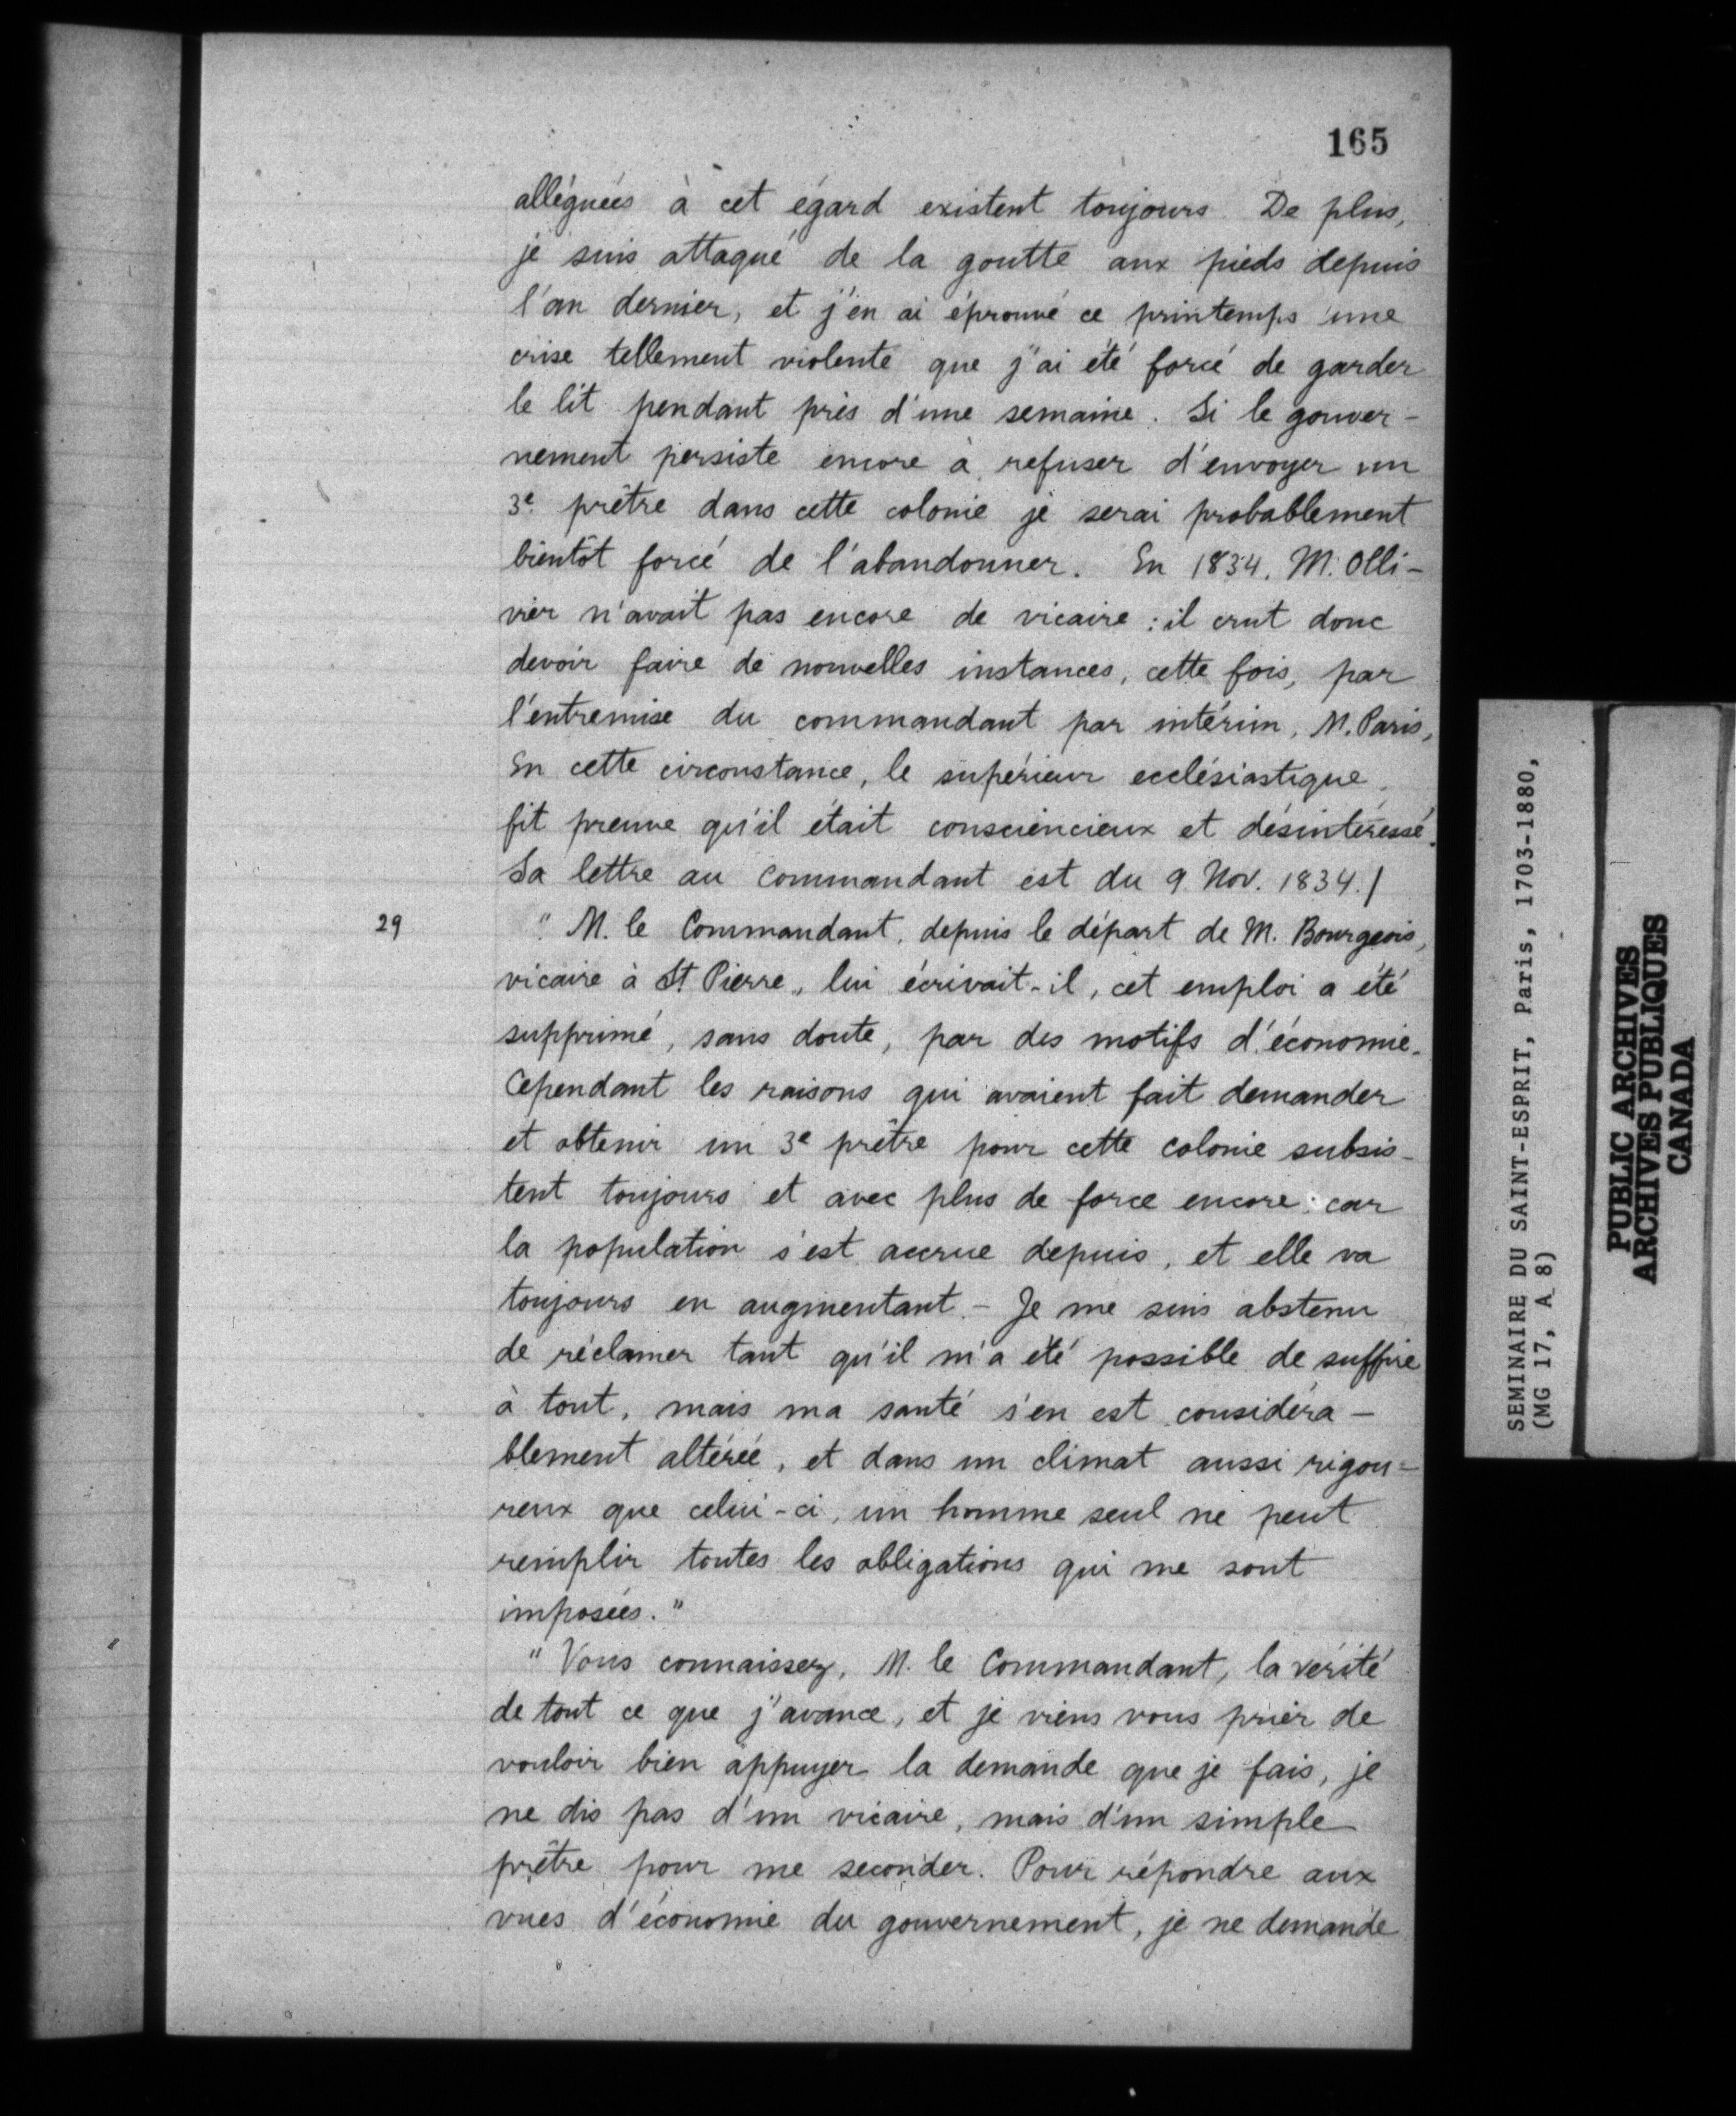 165
alléguées à cet égard existent toujours. De plus,
je suis attaqué de la goutte aux pieds depuis
l'an dernier, et j'en ai éprouvé ce printemps une
crise tellement violente que j'ai été forcé de garder
le lit pendant près d'une semaine. Si le gouver-
nement persiste encore à refuser d'envoyer un
3e prêtre dans cette colonie je serai probablement
bientôt forcé de l'abandonner. En 1834, M. Olli-
vier n'avait pas encore de vicaire : il crut donc
devoir faire de nouvelles instances, cette fois, par
l'entremise du commandant par intérim, M. Paris,
En cette circonstance, le supérieur ecclésiastique
fit preuve qu'il était consciencieux et désintéressé.
Sa lettre au commandant est du 9 Nov. 1834./
29
" M. le Commandant, depuis le départ de M. Bourgeois,
vicaire à St Pierre, lui écrivait-il, cet emploi a été
supprimé, sans doute, par des motifs d'économie.
Cependant les raisons qui avaient fait demander
et obtenir un 3e prêtre pour cette colonie subsis-
tent toujours et avec plus de force encore : car
la population s'est accrue depuis, et elle va
toujours en augmentant. - Je me suis abstenu
de réclamer tant qu'il m'a été possible de suffire
à tout, mais ma santé s'en est considéra-
blement altérée, et dans un climat aussi rigou=
reux que celui-ci, un homme seul ne peut
remplir toutes les obligations qui me sont
imposées."
" Vous connaissez, M. le Commandant, la vérité
de tout ce que j'avance, et je viens vous prier de
vouloir bien appuyer la demande que je fais, je
ne dis pas d'un vicaire, mais d'un simple
prêtre pour me seconder. Pour répondre aux
vues d'économie du gouvernement, je ne demande
SEMINAIRE DU SAINT-ESPRIT, Paris, 1703-1880,
(MG 17, A 8)
PUBLIC ARCHIVES
ARCHIVES PUBLIQUES
CANADA